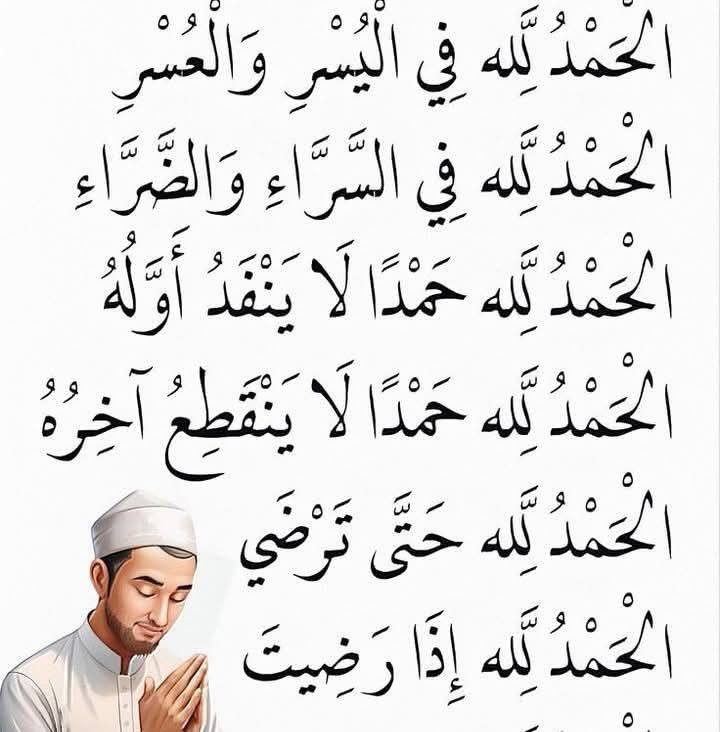 الْحَمْدُ لِلَّه فِي الْيُسْرِ وَالْعُسْرِ
الْحَمْدُ لِلَّه فِي السَّرَّاءِ وَالضَّرَّاءِ
الْحَمْدُ لِلَّه حَمْدًا لَا يَنْفَدُ أَوَّلُهُ
الْحَمْدُ لِلَّه حَمْدًا لَا يَنْقَطِعُ آخِرُهُ
الْحَمْدُ لِلَّه حَتَّى تَرْضَي
الْحَمْدُ لِلَّه إِذَا رَضِيتَ